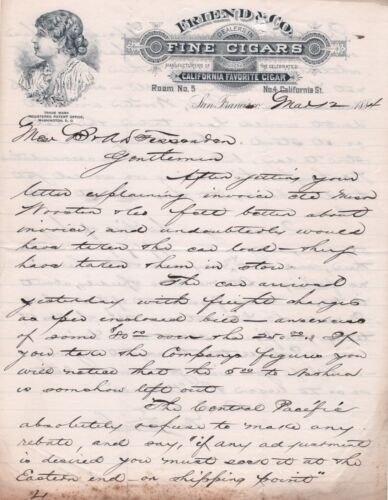 FRIEND & CO.
DEALERS IN
FINE CIGARS
MANUFACTURERS OF THE CELEBRATED
CALIFORNIA FAVORITE CIGAR
Room No. 5 No. 4 California St.
TRADE MARK
REGISTERED, PATENT OFFICE,
WASHINGTON, D. C.
San Francisco, Mar 12 1884
Mess B & A D Fessenden
Gentlemen
After getting your
letter explaining invoice etc Messrs
Wooster & Co felt better about
invoice, and undoubtedly would
have taken the car load – they
have taken them in store
The car arrived
yesterday with freight charges
as per enclosed bill – an excess
of some $80.00 over the 250.00. If
you take the Companys figures you
will notice that the 5.00 to Nashua
is somehow left out
The Central Pacific
absolutely refuse to make any
rebate, and say, "if any adjustment
is desired you must seek it at the
Eastern end – or shipping point"